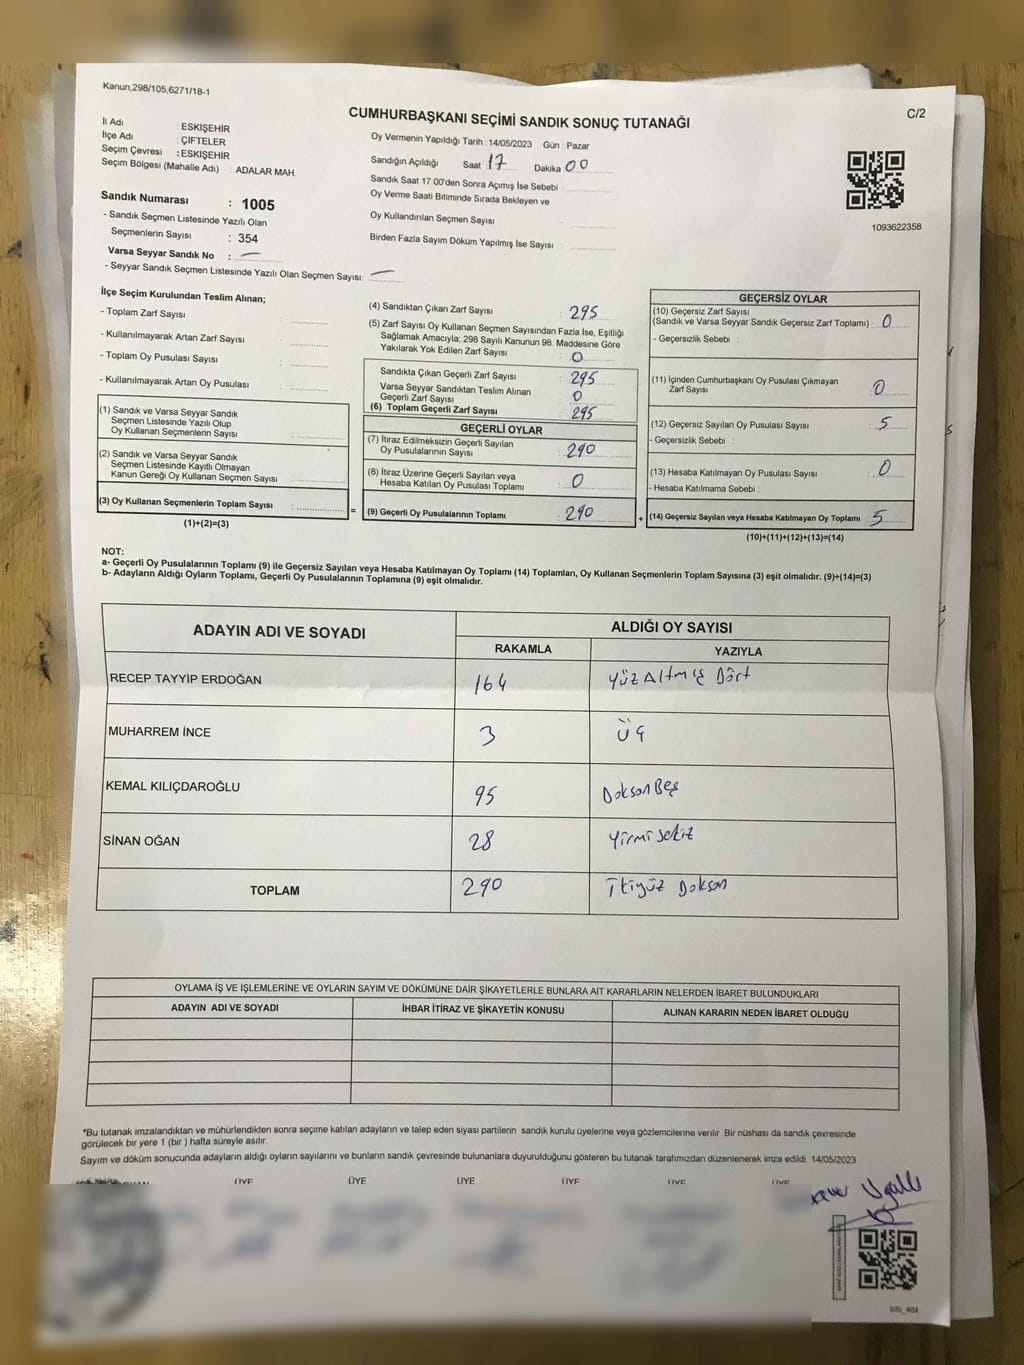 Kanun,298/105,6271/18-1
C/2
CUMHURBAŞKANI SEÇİMİ SANDIK SONUÇ TUTANAĞI
İl Adı : ESKİŞEHİR
İlçe Adı : ÇİFTELER
Seçim Çevresi : ESKİŞEHİR
Seçim Bölgesi (Mahalle Adı) : ADALAR MAH.
Oy Vermenin Yapıldığı Tarih : 14/05/2023 Gün : Pazar
Sandığın Açıldığı Saat 17 Dakika 00
Sandık Saat 17:00'den Sonra Açımış İse Sebebi :
Oy Verme Saati Bitiminde Sırada Bekleyen ve
Oy Kullandırılan Seçmen Sayısı :
Birden Fazla Sayım Döküm Yapılmış İse Sayısı :
1093622358
Sandık Numarası : 1005
- Sandık Seçmen Listesinde Yazılı Olan
Seçmenlerin Sayısı : 354
Varsa Seyyar Sandık No : —
- Seyyar Sandık Seçmen Listesinde Yazılı Olan Seçmen Sayısı: —
İlçe Seçim Kurulundan Teslim Alınan;
- Toplam Zarf Sayısı :
- Kullanılmayarak Artan Zarf Sayısı :
- Toplam Oy Pusulası Sayısı :
- Kullanılmayarak Artan Oy Pusulası :
(1) Sandık ve Varsa Seyyar Sandık
Seçmen Listesinde Yazılı Olup
Oy Kullanan Seçmenlerin Sayısı :
(2) Sandık ve Varsa Seyyar Sandık
Seçmen Listesinde Kayıtlı Olmayan
Kanun Gereği Oy Kullanan Seçmen Sayısı :
(3) Oy Kullanan Seçmenlerin Toplam Sayısı : =
(1)+(2)=(3)
(4) Sandıktan Çıkan Zarf Sayısı : 295
(5) Zarf Sayısı Oy Kullanan Seçmen Sayısından Fazla İse, Eşitliği
Sağlamak Amacıyla; 298 Sayılı Kanunun 98. Maddesine Göre
Yakılarak Yok Edilen Zarf Sayısı : 0
Sandıkta Çıkan Geçerli Zarf Sayısı : 295
Varsa Seyyar Sandıktan Teslim Alınan
Geçerli Zarf Sayısı : 0
(6) Toplam Geçerli Zarf Sayısı : 295
GEÇERLİ OYLAR
(7) İtiraz Edilmeksizin Geçerli Sayılan
Oy Pusulalarının Sayısı : 290
(8) İtiraz Üzerine Geçerli Sayılan veya
Hesaba Katılan Oy Pusulası Toplamı : 0
(9) Geçerli Oy Pusulalarının Toplamı : 290 +
GEÇERSİZ OYLAR
(10) Geçersiz Zarf Sayısı
(Sandık ve Varsa Seyyar Sandık Geçersiz Zarf Toplamı) : 0
- Geçersizlik Sebebi :
(11) İçinden Cumhurbaşkanı Oy Pusulası Çıkmayan
Zarf Sayısı : 0
(12) Geçersiz Sayılan Oy Pusulası Sayısı : 5
- Geçersizlik Sebebi :
(13) Hesaba Katılmayan Oy Pusulası Sayısı : 0
- Hesaba Katılmama Sebebi :
(14) Geçersiz Sayılan veya Hesaba Katılmayan Oy Toplamı : 5
(10)+(11)+(12)+(13)=(14)
NOT:
a- Geçerli Oy Pusulalarının Toplamı (9) ile Geçersiz Sayılan veya Hesaba Katılmayan Oy Toplamı (14) Toplamları, Oy Kullanan Seçmenlerin Toplam Sayısına (3) eşit olmalıdır. (9)+(14)=(3)
b- Adayların Aldığı Oyların Toplamı, Geçerli Oy Pusulalarının Toplamına (9) eşit olmalıdır.
ADAYIN ADI VE SOYADI ALDIĞI OY SAYISI
RAKAMLA YAZIYLA
RECEP TAYYİP ERDOĞAN 164 YüzAltmış Dört
MUHARREM İNCE 3 Üç
KEMAL KILIÇDAROĞLU 95 DoksanBeş
SİNAN OĞAN 28 Yirmi sekiz
TOPLAM 290 İkiyüz Doksan
OYLAMA İŞ VE İŞLEMLERİNE VE OYLARIN SAYIM VE DÖKÜMÜNE DAİR ŞİKAYETLERLE BUNLARA AİT KARARLARIN NELERDEN İBARET BULUNDUKLARI
ADAYIN ADI VE SOYADI İHBAR İTİRAZ VE ŞİKAYETİN KONUSU ALINAN KARARIN NEDEN İBARET OLDUĞU
*Bu tutanak imzalandıktan ve mühürlendikten sonra seçime katılan adayların ve talep eden siyasi partilerin sandık kurulu üyelerine veya gözlemcilerine verilir. Bir nüshası da sandık çevresinde
görülecek bir yere 1 (bir ) hafta süreyle asılır.
Sayım ve döküm sonucunda adayların aldığı oyların sayılarını ve bunların sandık çevresinde bulunanlara duyurulduğunu gösteren bu tutanak tarafımızdan düzenlenerek imza edildi. 14/05/2023
ÜYE ÜYE ÜYE ÜYE ÜYE ÜYE